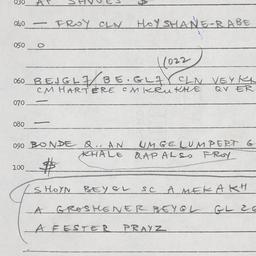 040 — FROY CLN HOYSHANE-RABE
050 0
1022
060 BEJGLZ/BE.GLZ/CLN VEYKL
CMHARTERE CMKRUKHE QV ER
070 —
080 —
090 BONDE Q..AN UMGELUMPERT G
KHALE QAPALSO FROY
100 $
SHOYN BEYGL SC A MEKAKH
A GROSHENER BEYGL GL ZG
A FESTER PRAYZ